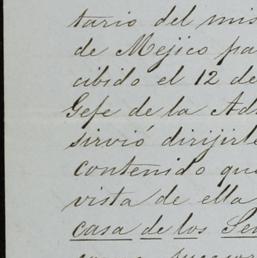 tario del mis
de Mejico pa
cibido el 12 de
Gefe de la Ad
sirvió dirijirl
contenido que
vista de ella
casa de los Se